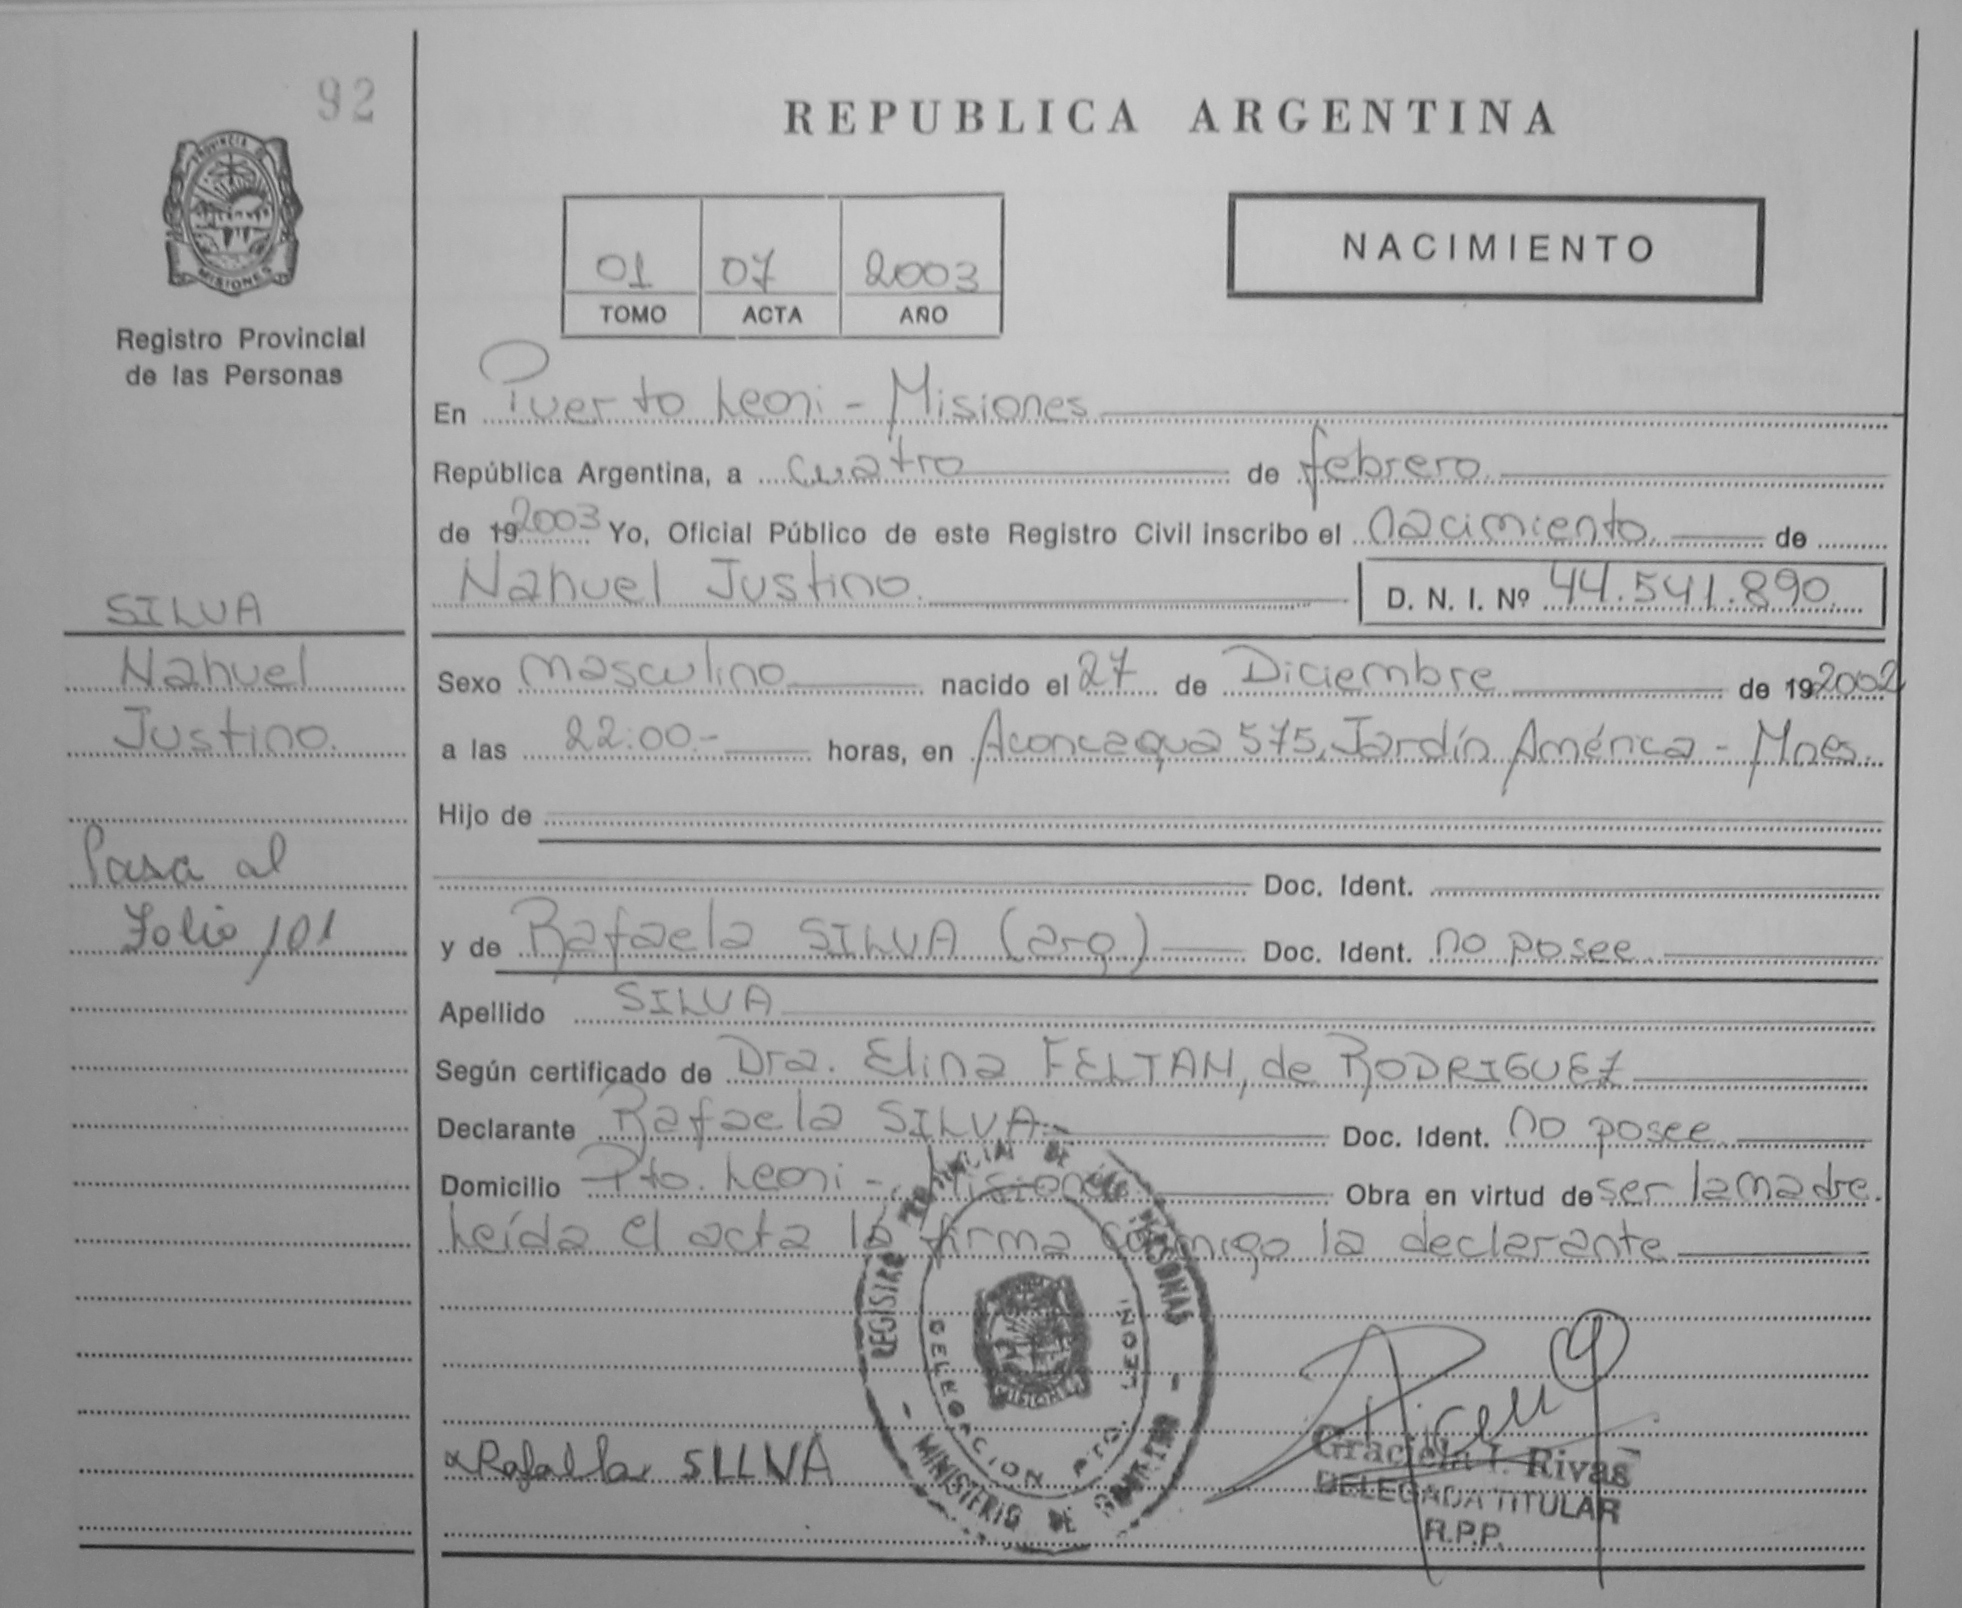 92
REPUBLICA ARGENTINA
PROVINCIA DE
MISIONES
Registro Provincial
de las Personas
01 07 2003
TOMO ACTA AÑO
NACIMIENTO
En Puerto Leoni - Misiones
República Argentina, a cuatro de febrero
de 19 2003 Yo, Oficial Público de este Registro Civil inscribo el nacimiento de
Nahuel Justino. D. N. I. Nº 44.541.890
SILVA
Nahuel
Justino.
Pasa al
Folio 101
Sexo masculino nacido el 27 de Diciembre de 19 2002
a las 22:00.- horas, en Aconcagua 575, Jardín América - Mnes.
Hijo de
Doc. Ident.
y de Rafaela SILVA (arg) Doc. Ident. no posee
Apellido SILVA
Según certificado de Dra. Elina FELTAN, de RODRIGUEZ
Declarante Rafaela SILVA Doc. Ident. no posee
Domicilio Pto. Leoni - Misiones Obra en virtud de ser la madre.
Leída el acta la firma conmigo la declarante
REGISTRO PROVINCIAL DE PERSONAS
DELEGACION PTO. LEONI
MISIONES
- MINISTERIO DE GOBIERNO -
Rafaela SILVA
Graciela I. Rivas
DELEGADA TITULAR
R.P.P.